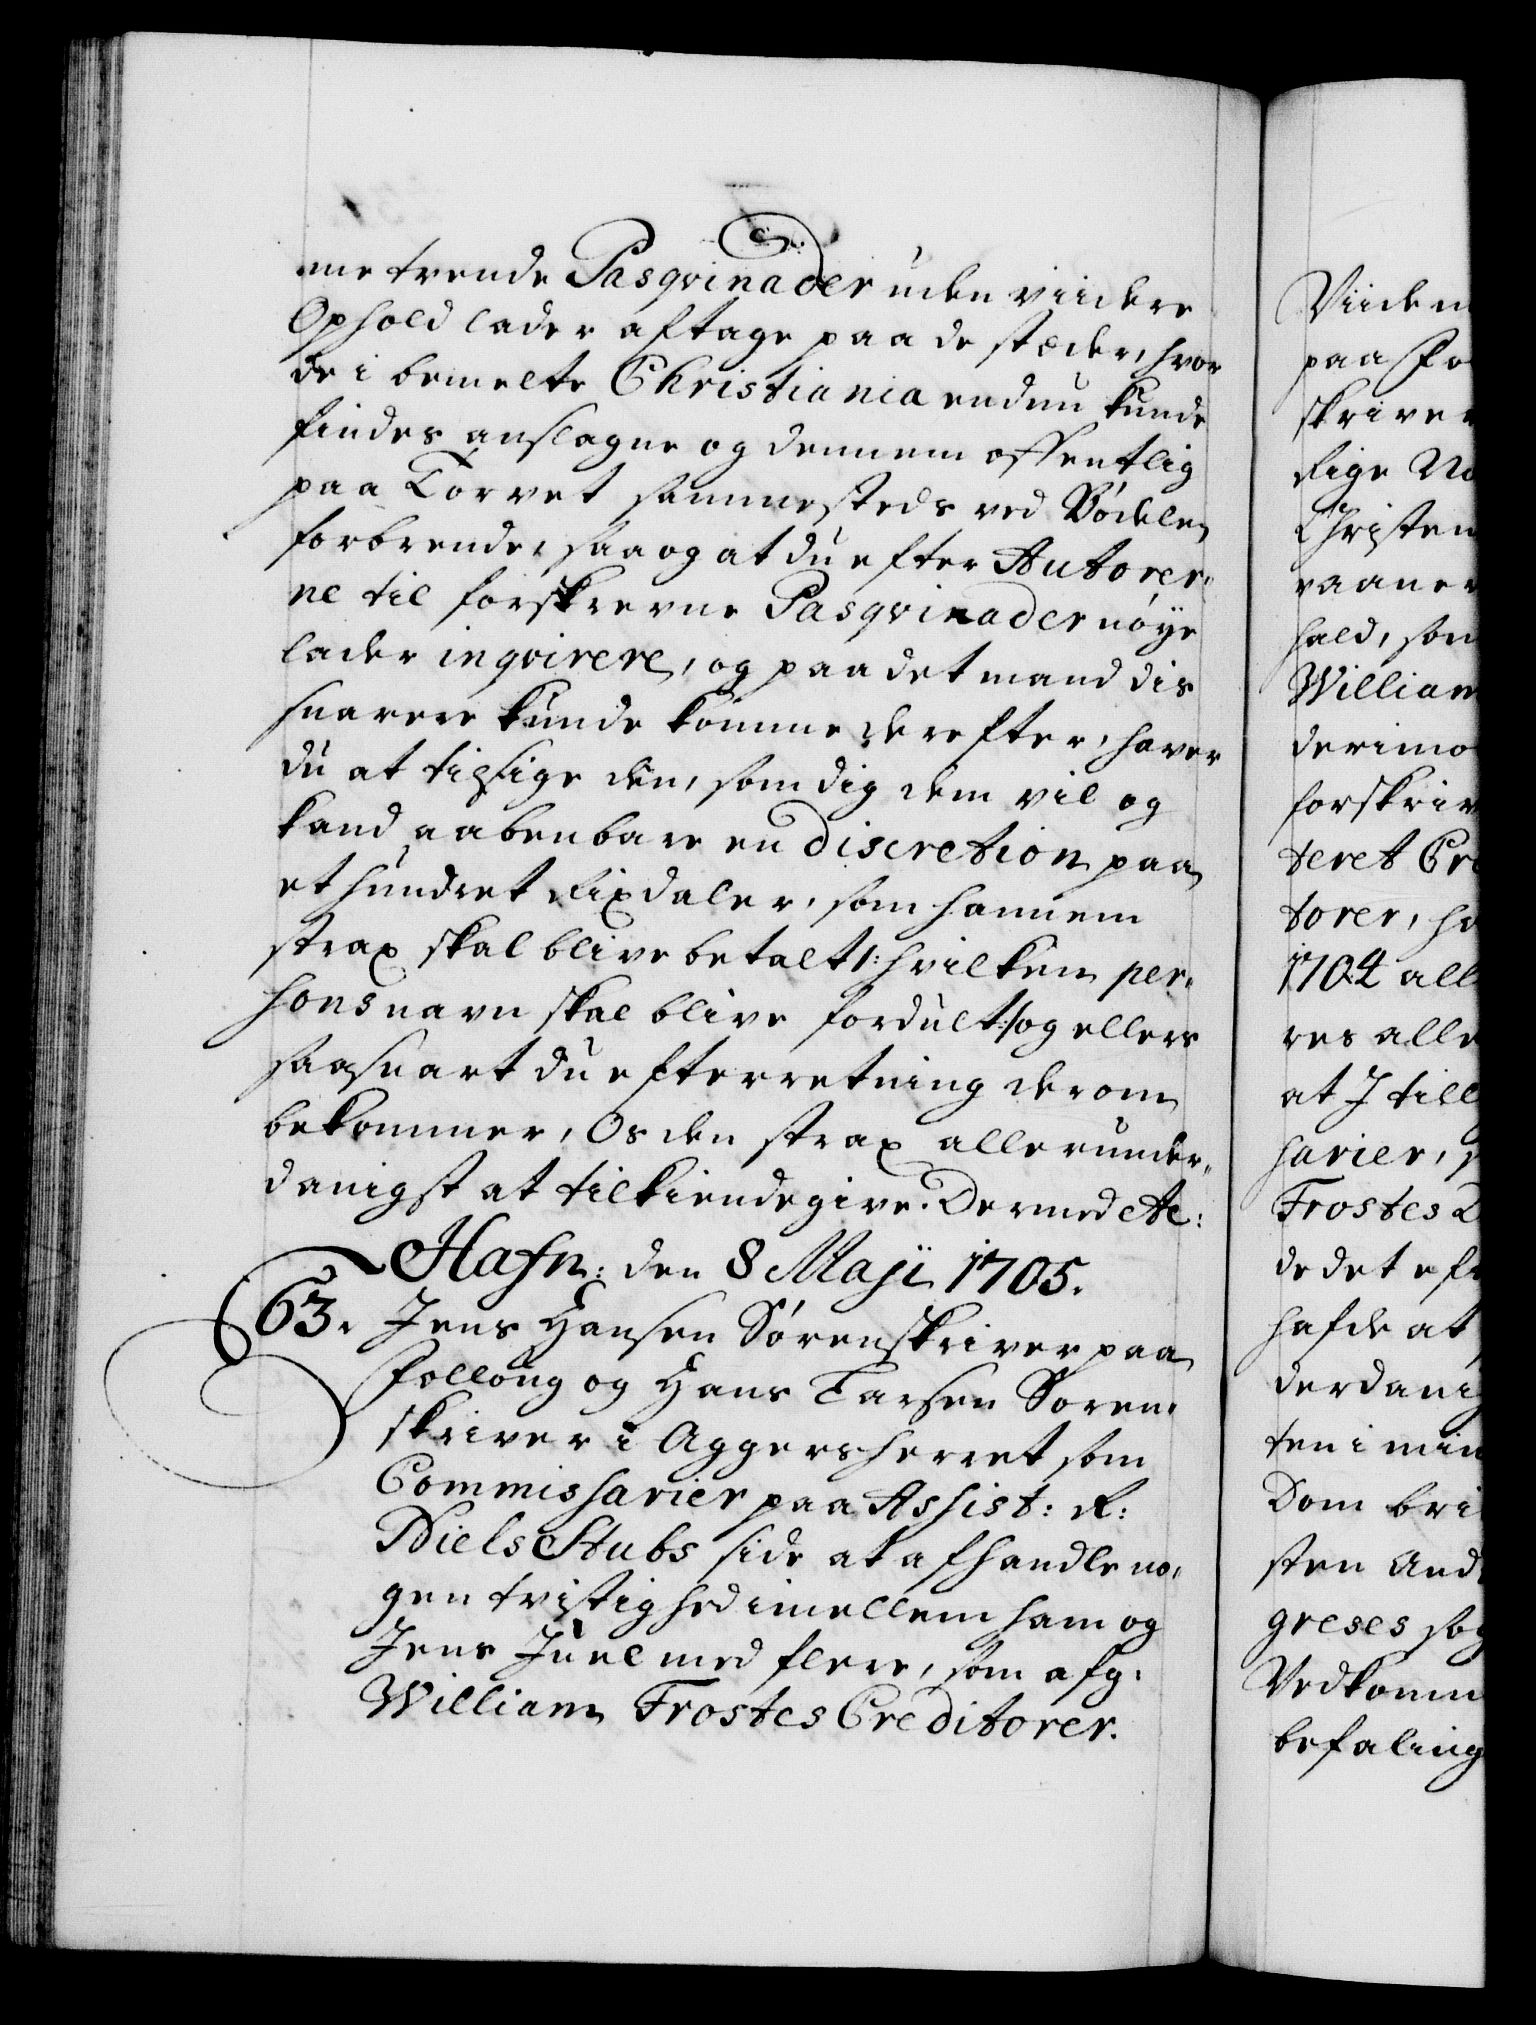 me trende Pasqvinader uden viidere
Ophold lader aftage paa de stæder, hvor
de i bemelte Christiania endnu kunde
findes anslagne og dennem offentlig
paa Torvet sammesteds ved Bödelen
forbrende, saa og at du efter Autorer,,
ne til forskrevne Pasqvinader nöye
lader inqvirere, og paa det mand dis
snarere kunde komme derefter, haver
du at tilsige den, som dig dem vil og
kand aabenbare en discretion paa
et hundret Rixdaler, som hannem
strax skal blive betalt /: hvilken per,,
sons navn skal blive fordult :/ og ellers
saasnart du efterretning derom
bekommer, Os den strax allerunder,,
danigst at tilkiendegive. Dermed etc:
Hafn: den 8 Maji 1705.
63. Jens Hansen Sörenskriver paa
Folloug og Hans Larsen Soren,,
skriver i Aggersherret som
Commissarier paa Assist: R:
Niels Stubs side at afhandle no,,
gen tvistighed imellem ham og
Jens Juel med flere, som afg:
William Frostes Creditorer.
Viide
paa Fo
skriver
lige No
Christen
vaaner
hald, som
William
derimo
forskriv
teret Cre
torer, ha
1704 all
res alle
at I till
sarier, p
Frostes
de det eft
hafde at
derdanig
ten i min
Dom bri
sten And
greses sag
Vedkomm
befaling